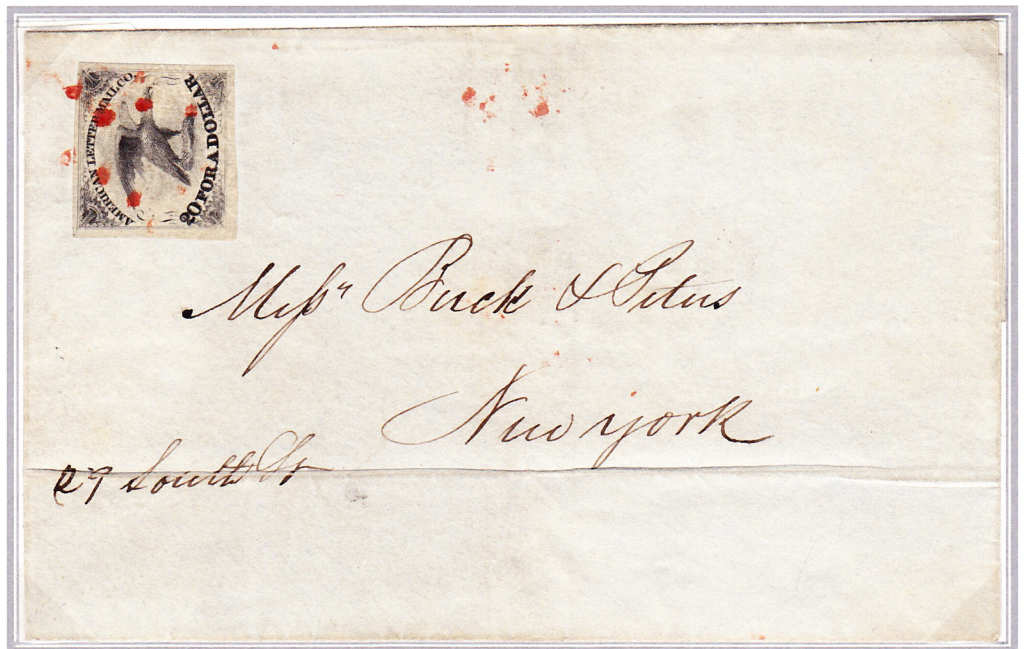 AMERICAN LETTER MAIL CO.
20 FOR A DOLLAR
Messrs Buck & Peters
New york
29 South St